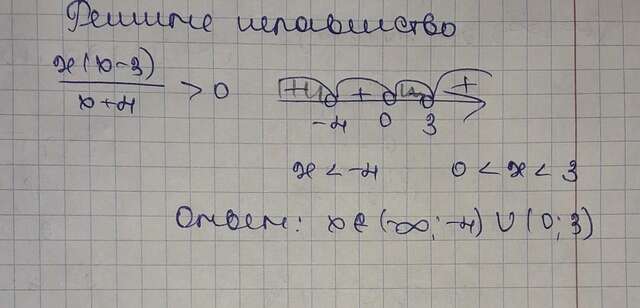 Решите неравенство
x(x-3)
x+4
> 0
+ +
-4 0 3
x < -4 0 < x < 3
Ответ: x ∈ (-∞; -4) ∪ (0; 3)